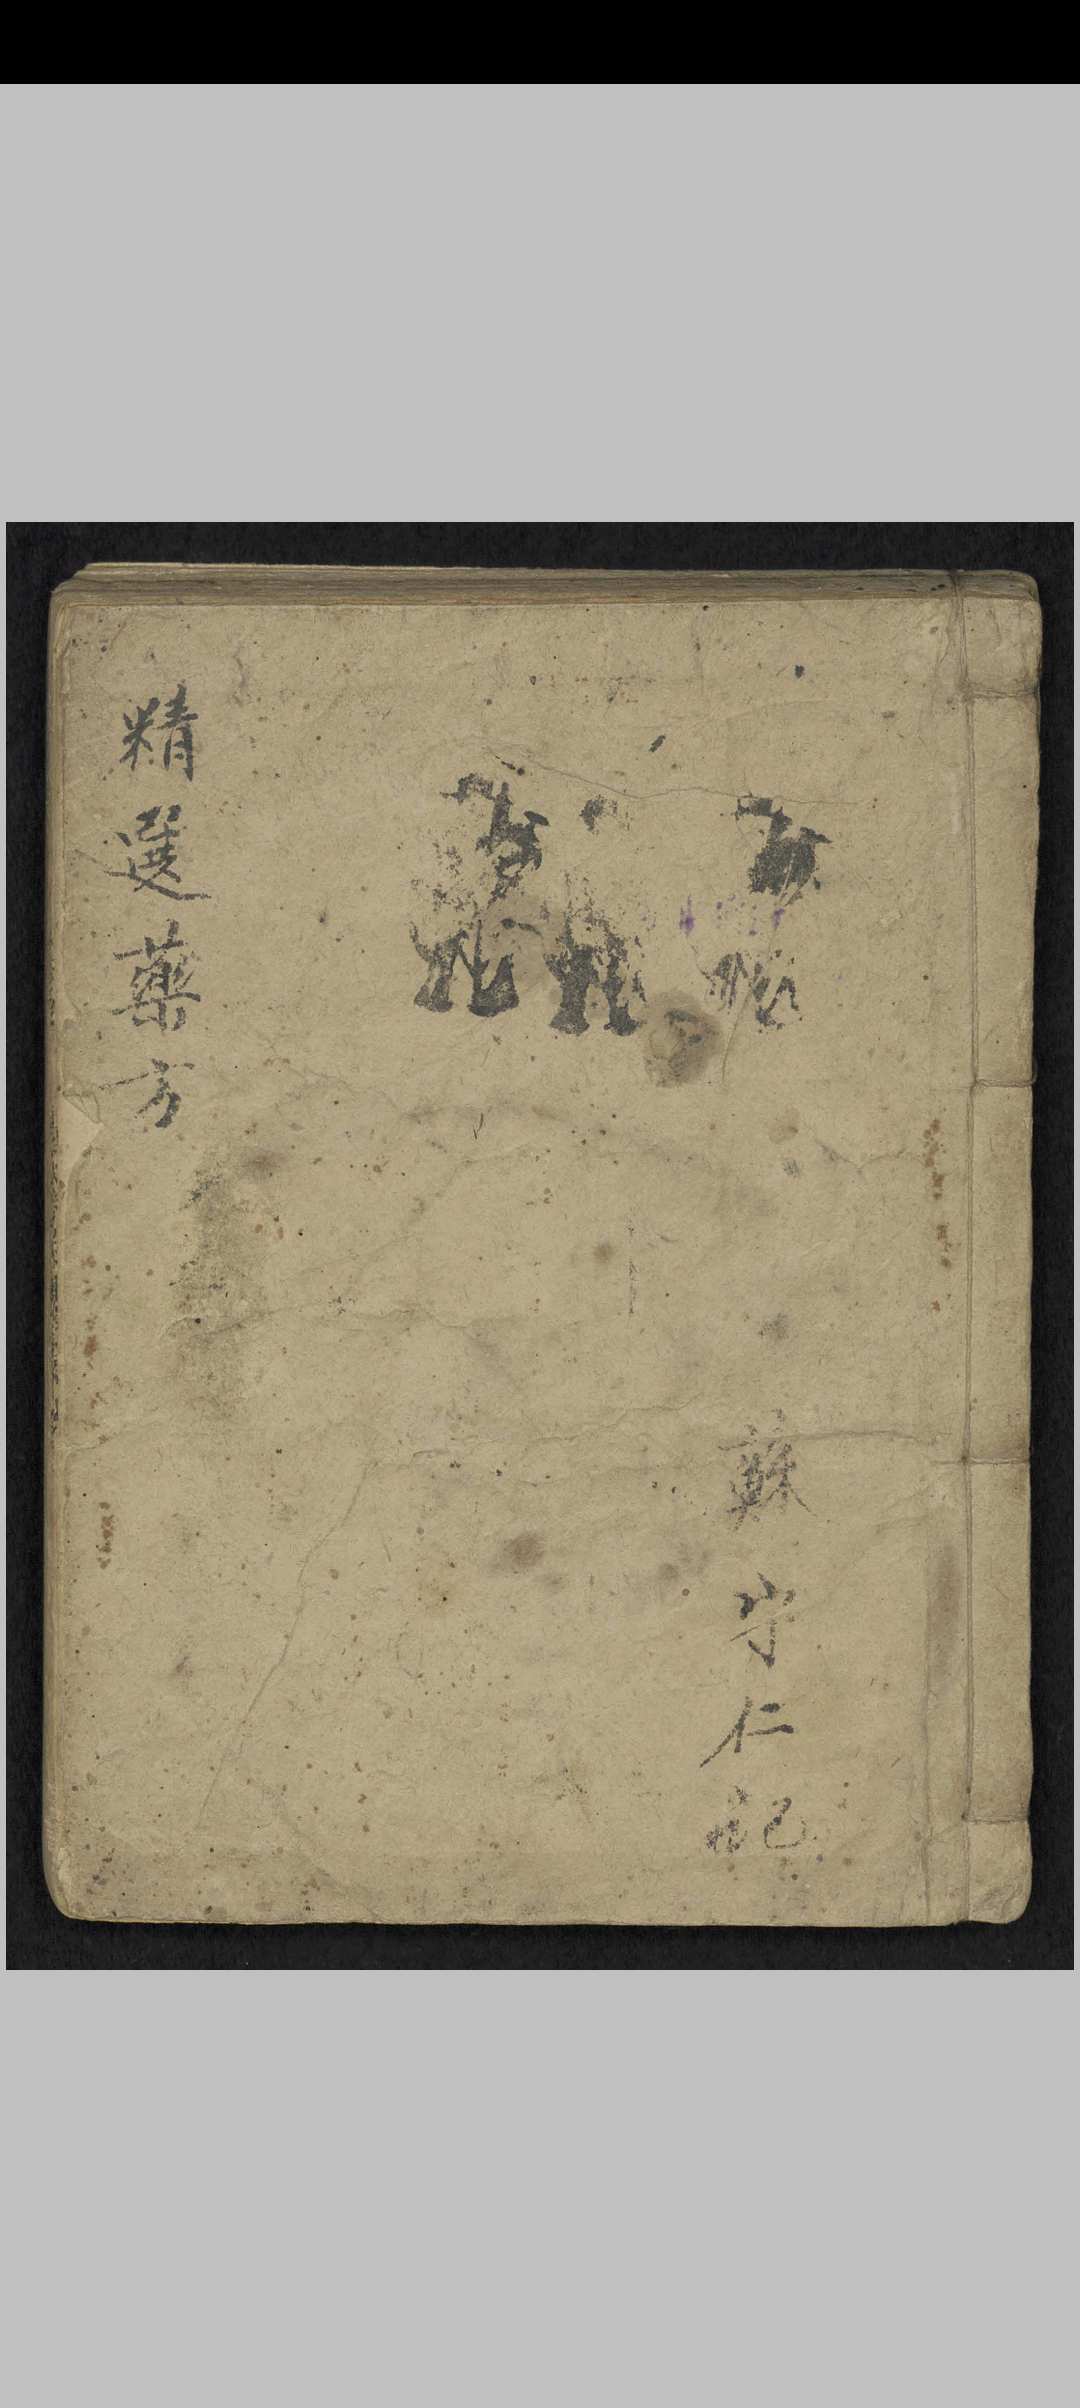 蘇守仁記
精選藥方